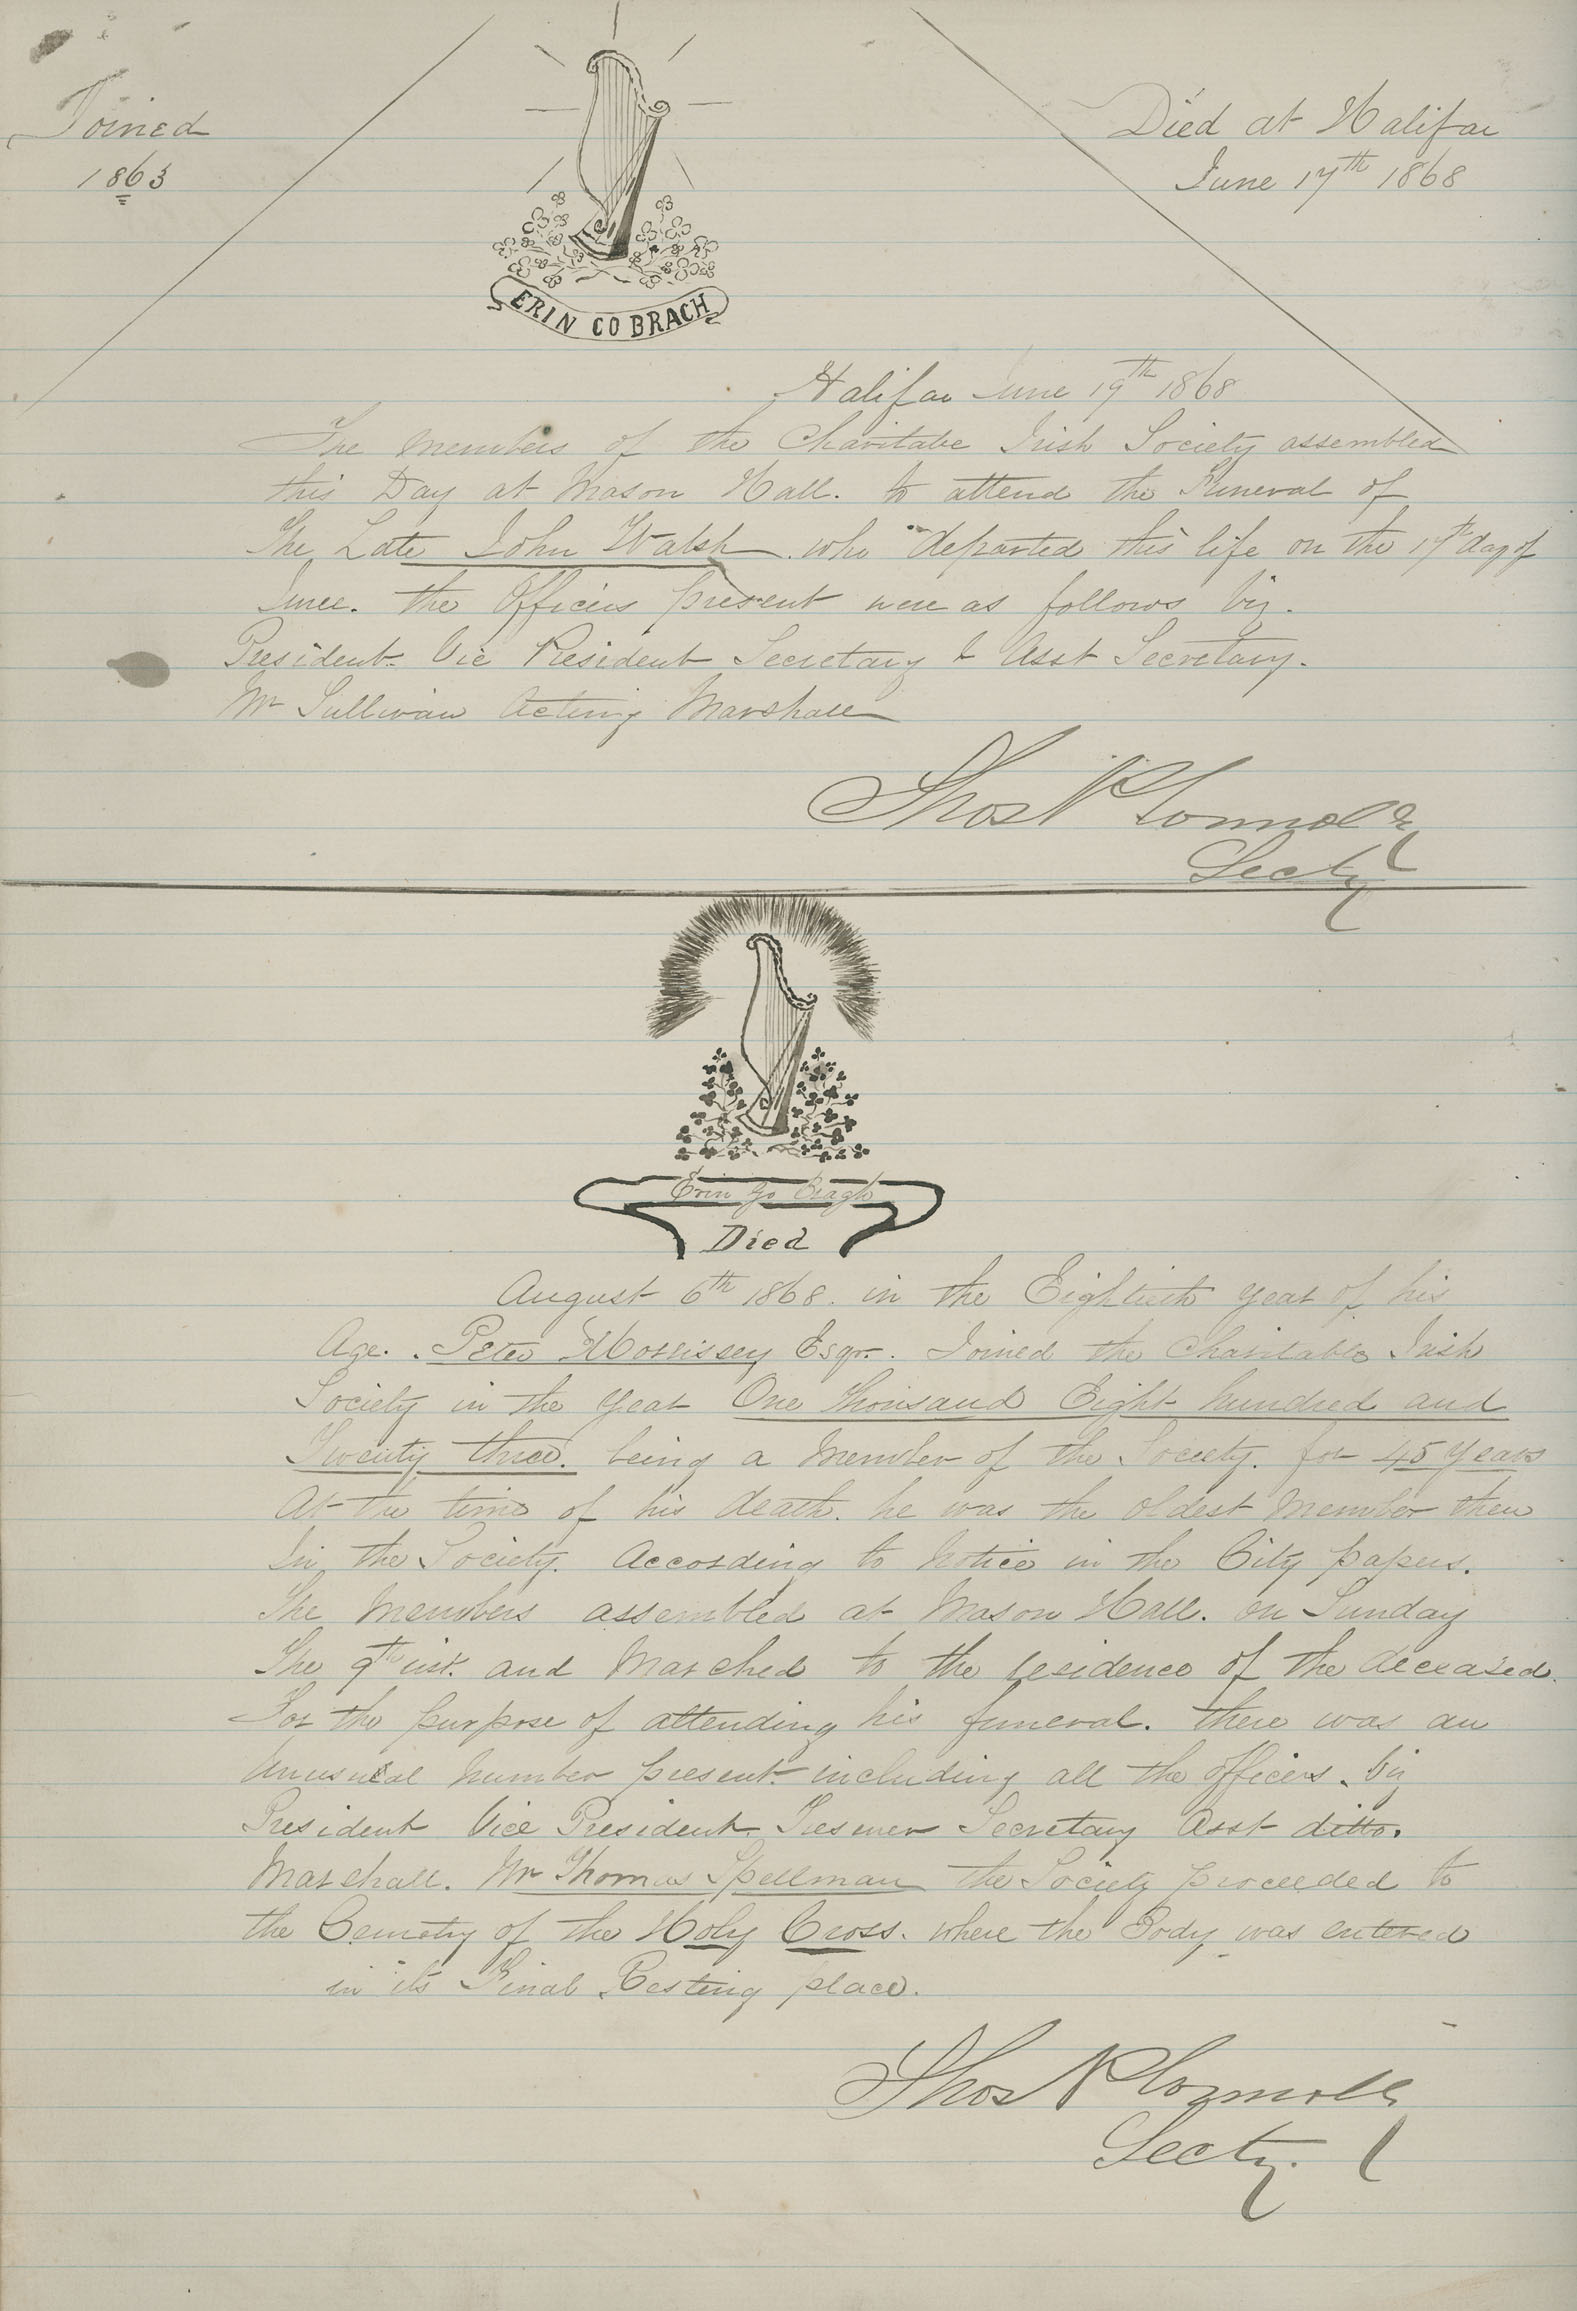 Joined
1863
Died at Halifax
June 17th 1868
ERIN GO BRACH
Halifax June 19th 1868
The members of the Charitabe Irish Society assembled
this Day at Mason Hall. to attend the Funeral of
The Late John Walsh. who departed this life on the 17th day of
June. the Officers present were as follows viz.
President. Vice President Secretary & Asst Secretary.
Mr Sullivan Acting Marshall
Thos P Connolly
Secty
Erin Go Bragh
Died
August 6th 1868. in the Eightieth year of his
Age. Peter Morrissey Esqr. Joined the Charitable Irish
Society in the year One Thousand Eight hundred and
Twenty three. being a Member of the Society. for 45 Years
At the time of his death. he was the oldest Member then
In the Society. According to Notice in the City papers.
The Members assembled at Mason Hall. on Sunday
The 9th inst. and Marched to the residence of the deceased.
For the purpose of attending his funeral. there was an
Unusual number present including all the officers. viz
President Vice President. Tresurer Secretary Asst ditto.
Marshall. Mr Thomas Spellman the Society proceeded to
the Cemetry of the Holy Cross. where the Body was entered
in its Final Resting place.
Thos P Connolly
Secty.